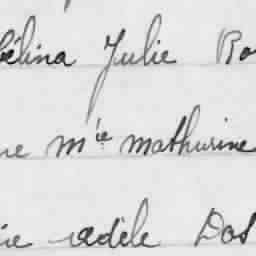 élina Julie Ro
ne Mie Mathurine
ie adèle Dos